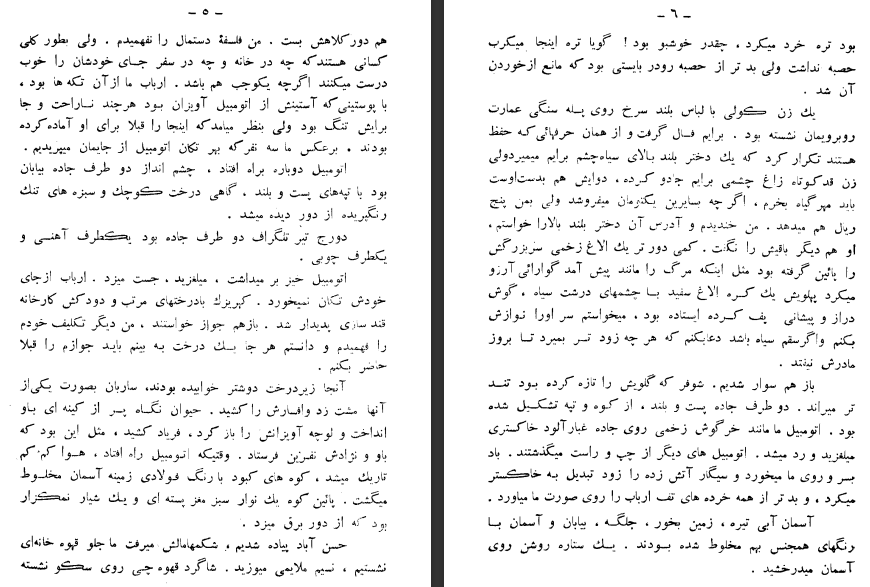 - ۵ -
هم دور کلاهش بست . من فلسفهٔ دستمال را نفهمیدم . ولی بطور کلی
کسانی هستند که چه در خانه و چه در سفر جای خودشان را خوب
درست میکنند اگرچه یکوجب هم باشد . ارباب ما از آن تکه‌ها بود ،
با پوستینی که آستینش از اتومبیل آویزان بود هرچند ناراحت و جا
برایش تنگ بود ولی بنظر میامد که اینجا را قبلا برای او آماده کرده
بودند . برعکس ما سه نفر که بهر تکان اتومبیل از جایمان میپریدیم .
اتومبیل دوباره براه افتاد ، چشم انداز دو طرف جاده بیابان
بود با تپه‌های پست و بلند . گاهی درخت کوچك و سبزه های تنك
رنگپریده از دور دیده میشد .
دورج تیر تلگراف دو طرف جاده بود یکطرف آهنی و
یکطرف چوبی .
اتومبیل خیز بر میداشت ، میلغزید ، جست میزد . ارباب ازجای
خودش تکان نمیخورد . کهریزك بادرختهای مرتب و دودکش کارخانه
قند سازی پدیدار شد . بازهم جواز خواستند ، من دیگر تکلیف خودم
را فهمیدم و دانستم هر جا یك درخت به بینم باید جوازم را قبلا
حاضر بکنم .
آنجا زیردرخت دوشتر خوابیده بودند، ساربان بصورت یکی‌از
آنها مشت زد وافسارش را کشید . حیوان نگاه پر از کینه ای باو
انداخت و لوچه آویزانش را باز کرد ، فریاد کشید ، مثل این بود که
باو و نژادش نفرین فرستاد . وقتیکه اتومبیل راه افتاد ، هوا کم‌کم
تاریك میشد ، کوه های کبود با رنگ فولادی زمینه آسمان مخلوط
میگشت . پائین کوه یك نوار سبز مغز پسته ای و یك شیار نمکزار
بود که از دور برق میزد .
حسن آباد پیاده شدیم ، شکمهامالش میرفت ما جلو قهوه خانه‌ای
نشستیم ، نسیم ملایمی میوزید . شاگرد قهوه چی روی سکو نشسته
- ٦ -
بود تره خرد میکرد ، چقدر خوشبو بود ! گویا تره اینجا میکرب
حصبه نداشت ولی بد تر از حصبه رودر بایستی بود که مانع ازخوردن
آن شد .
یك زن کولی با لباس بلند سرخ روی پله سنگی عمارت
روبرویمان نشسته بود . برایم فال گرفت و از همان حرفهائی‌که حفظ
هستند تکرار کرد که یك دختر بلند بالای سیاه‌چشم برایم میمیردولی
زن قدکوتاه زاغ چشمی برایم جادو کرده ، دوایش هم بدست‌اوست
باید مهرگیاه بخرم ، اگر چه سایرین یکتومان میفروشد ولی بمن پنج
ریال هم میدهد . من خندیدم و آدرس آن دختر بلند بالارا خواستم ،
او هم دیگر باقیش را نگفت . کمی دور تر یك الاغ زخمی سربزرگش
را پائین گرفته بود مثل اینکه مرگ را مانند پیش آمد گوارائی آرزو
میکرد پهلویش یك کره الاغ سفید با چشمهای درشت سیاه ، گوش
دراز و پیشانی پف کرده ایستاده بود ، میخواستم سر اورا نوازش
بکنم واگرسقم سیاه باشد دعابکنم که هر چه زود تر بمیرد تا بروز
مادرش نیفتد .
باز هم سوار شدیم. شوفر که گلویش را تازه کرده بود تند
تر میراند . دو طرف جاده پست و بلند ، از کوه و تپه تشکیل شده
بود . اتومبیل ما مانند خرگوش زخمی روی جاده غبارآلود خاکستری
میلغزید و رد میشد . اتومبیل های دیگر از چپ و راست میگذشتند . باد
بسر و روی ما میخورد و سیگار آتش زده را زود تبدیل به خاکستر
میکرد ، و بد تر از همه خرده های تف ارباب را روی صورت ما میاورد .
آسمان آبی تیره ، زمین بخور ، جلگه ، بیابان و آسمان با
رنگهای همجنس بهم مخلوط شده بودند . یك ستاره روشن روی
آسمان میدرخشید .